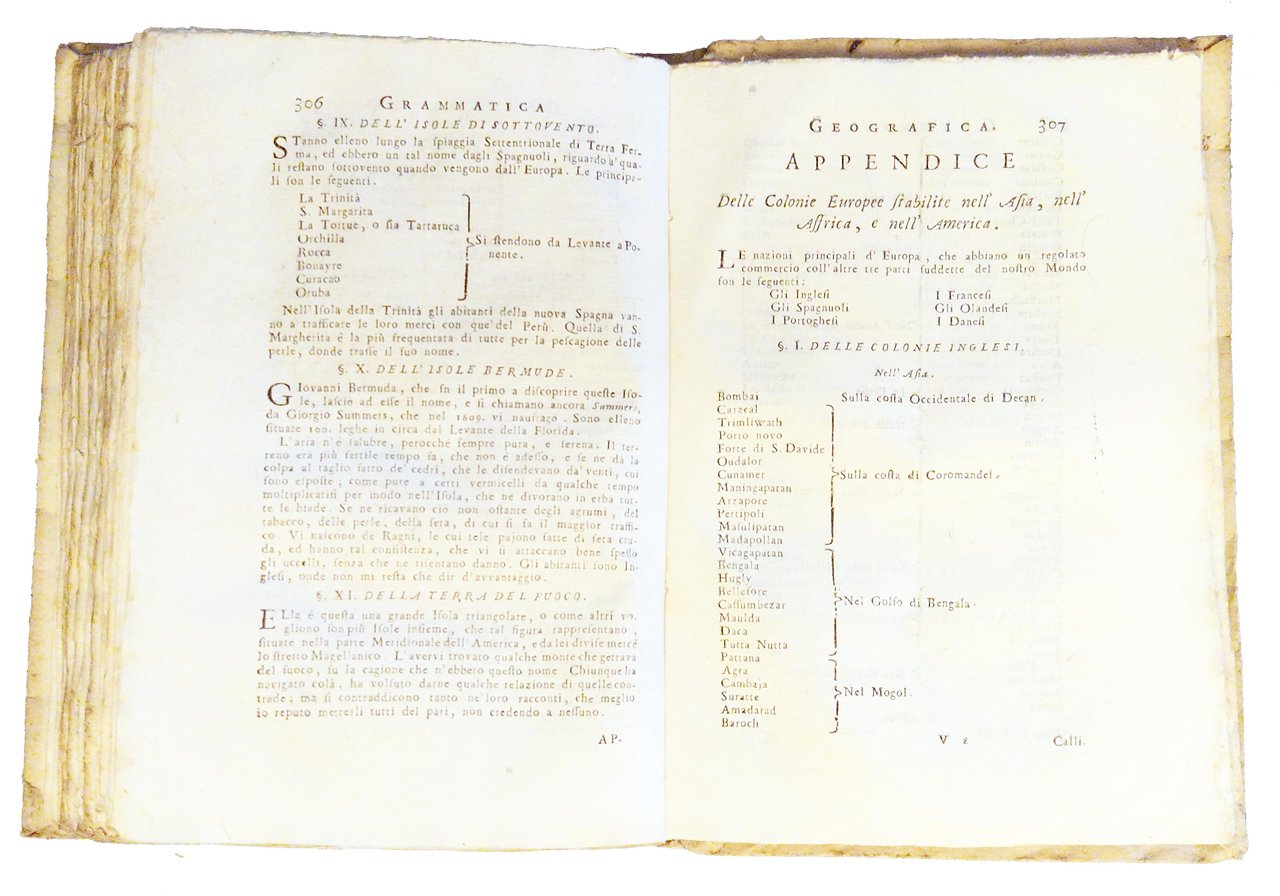 306 GRAMMATICA
§. IX. DELL' ISOLE DI SOTTOVENTO.
STanno elleno lungo la ſpiaggia Settentrionale di Terra Fer-
ma, ed ebbero un tal nome dagli Spagnuoli, riguardo a' qua-
li reſtano ſottovento quando vengono dall' Europa. Le principa-
li ſon le ſeguenti.
La Trinità
S. Margarita
La Tortue, o ſia Tartaruca
Orchilla
Rocca
Bonayre
Curacao
Oruba
Si ſtendono da Levante a Po-
nente.
Nell' Iſola della Trinità gli abitanti della nuova Spagna van-
no a trafficare le loro merci con que' del Perù. Quella di S.
Margherita è la più frequentata di tutte per la peſcagione delle
perle, donde traſſe il ſuo nome.
§. X. DELL' ISOLE BERMUDE.
GIovanni Bermuda, che fu il primo a diſcoprire queſte Iſo-
le, laſciò ad eſſe il nome, e ſi chiamano ancora Summers,
da Giorgio Summers, che nel 1609. vi naufragò. Sono elleno
ſituate 100. leghe in circa dal Levante della Florida.
L'aria n'è ſalubre, perocchè ſempre pura, e ſerena. Il ter-
reno era più fertile tempo fa, che non è adeſſo, e ſe ne dà la
colpa al taglio fatto de' cedri, che le difendevano da' venti, cui
ſono eſpoſte; come pure a certi vermicelli da qualche tempo
moltiplicatiſi per modo nell' Iſola, che ne divorano in erba tut-
te le biade. Se ne ricavano ciò non oſtante degli agrumi, del
tabacco, delle perle, della ſeta, di cui ſi fa il maggior traffi-
co. Vi naſcono de Ragni, le cui tele pajono fatte di ſeta cru-
da, ed hanno tal conſiſtenza, che vi ſi attaccano bene ſpeſſo
gli uccelli, ſenza che ne riſentano danno. Gli abitanti ſono In-
gleſi, onde non mi reſta che dir d'avvantaggio.
§. XI. DELLA TERRA DEL FUOCO.
ELla è queſta una grande Iſola triangolare, o come altri vo-
gliono ſon più Iſole inſieme, che tal figura rappreſentano,
ſituate nella parte Meridionale dell' America, e da lei diviſe mercè
lo ſtretto Magellanico. L'avervi trovato qualche monte che gettava
del fuoco, fu la cagione che n'ebbero queſto nome. Chiunque ha
navigato colà, ha voluto darne qualche relazione di quelle con-
trade; ma ſi contraddicono tanto ne' loro racconti, che meglio
io reputo metterli tutti del pari, non credendo a neſſuno.
AP-
GEOGRAFICA. 307
APPENDICE
Delle Colonie Europee ſtabilite nell' Aſia, nell'
Affrica, e nell' America.
LE nazioni principali d' Europa, che abbiano un regolato
commercio coll' altre tre parti ſuddette del noſtro Mondo
ſon le ſeguenti:
Gli Ingleſi I Franceſi
Gli Spagnuoli Gli Olandeſi
I Portogheſi I Daneſi
§. I. DELLE COLONIE INGLESI.
Nell' Aſia.
Bombai Sulla coſta Occidentale di Decan.
Caracal
Trimliwath
Porto novo
Forte di S. Davide
Oudalor
Cunamer
Maningapatan
Arzapore
Pertipoli
Maſulipatan
Madapollan
Sulla coſta di Coromandel.
Vicagapatan
Bengala
Hugly
Bellefore
Caſſumbezar
Maulda
Daca
Tutta Nutta
Nel Golfo di Bengala.
Pattana
Agra
Cambaja
Suratte
Amadarad
Baroch
Nel Mogol.
V 2 Caſli.